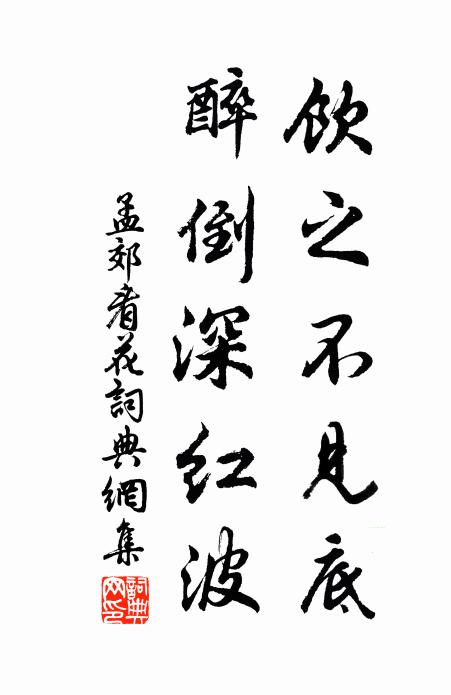 飲之不見底
醉倒深紅波
孟郊看花詞典網集
詞典
網印